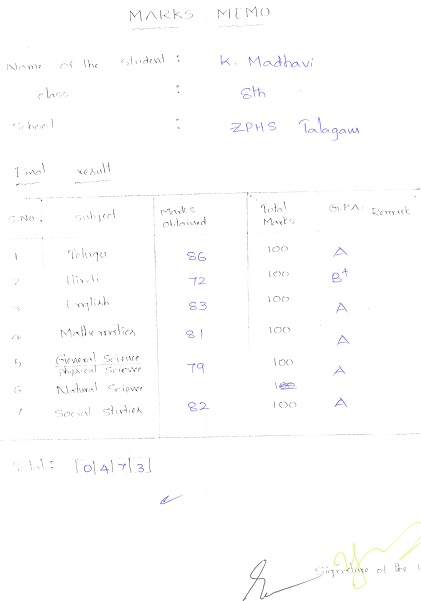 MARKS MEMO
Name of the student : K. Madhavi
class : 8th
School : ZPHS Talagam
Final result
S.No. Subject Marks Obtained Total Marks G.P.A. Remark
1 Telugu 86 100 A
2 Hindi 72 100 B+
3 English 83 100 A
4 Mathematics 81 100 A
5 General Science / Physical Science 79 100 A
6 Natural Science 100
7 Social Studies 82 100 A
Total : 0473
Signature of the